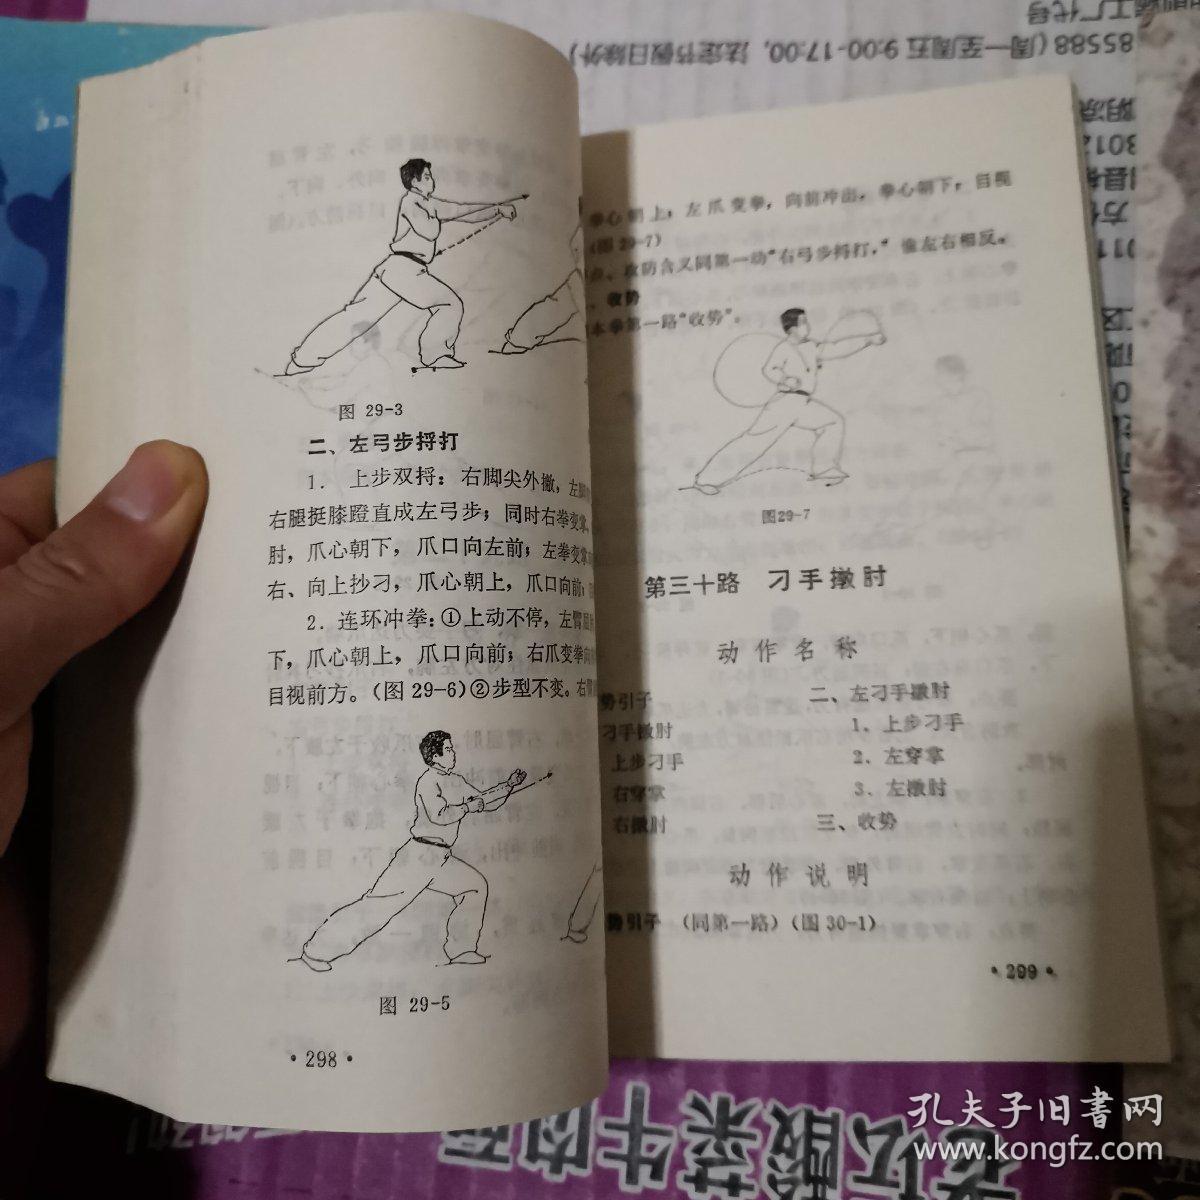 图 29-3
二、左弓步捋打
1. 上步双捋：右脚尖外撇，左脚
右腿挺膝蹬直成左弓步；同时右拳变掌
肘，爪心朝下，爪口向左前；左拳变掌
右、向上抄刁，爪心朝上，爪口向前；
2. 连环冲拳：①上动不停，左臂屈肘
下，爪心朝上，爪口向前；右爪变拳向
目视前方。（图 29-6）②步型不变。右臂
图 29-5
·298·
拳心朝上；左爪变拳，向前冲出，拳心朝下，目视
（图29-7）
点、攻防含义同第一动“右弓步捋打，”惟左右相反。
、收势
本拳第一路“收势”。
图29-7
第三十路 刁手撴肘
动作名称
势引子
刁手撴肘
上步刁手
右穿掌
右撴肘
二、左刁手撴肘
1、上步刁手
2、左穿掌
3、左撴肘
三、收势
动作说明
势引子 （同第一路）（图 30-1）
·299·
85588（周一至周五 9:00-17:00，法定节假日除外）
工厂代号
老坛酸菜牛肉面
孔夫子旧书网
www.kongfz.com